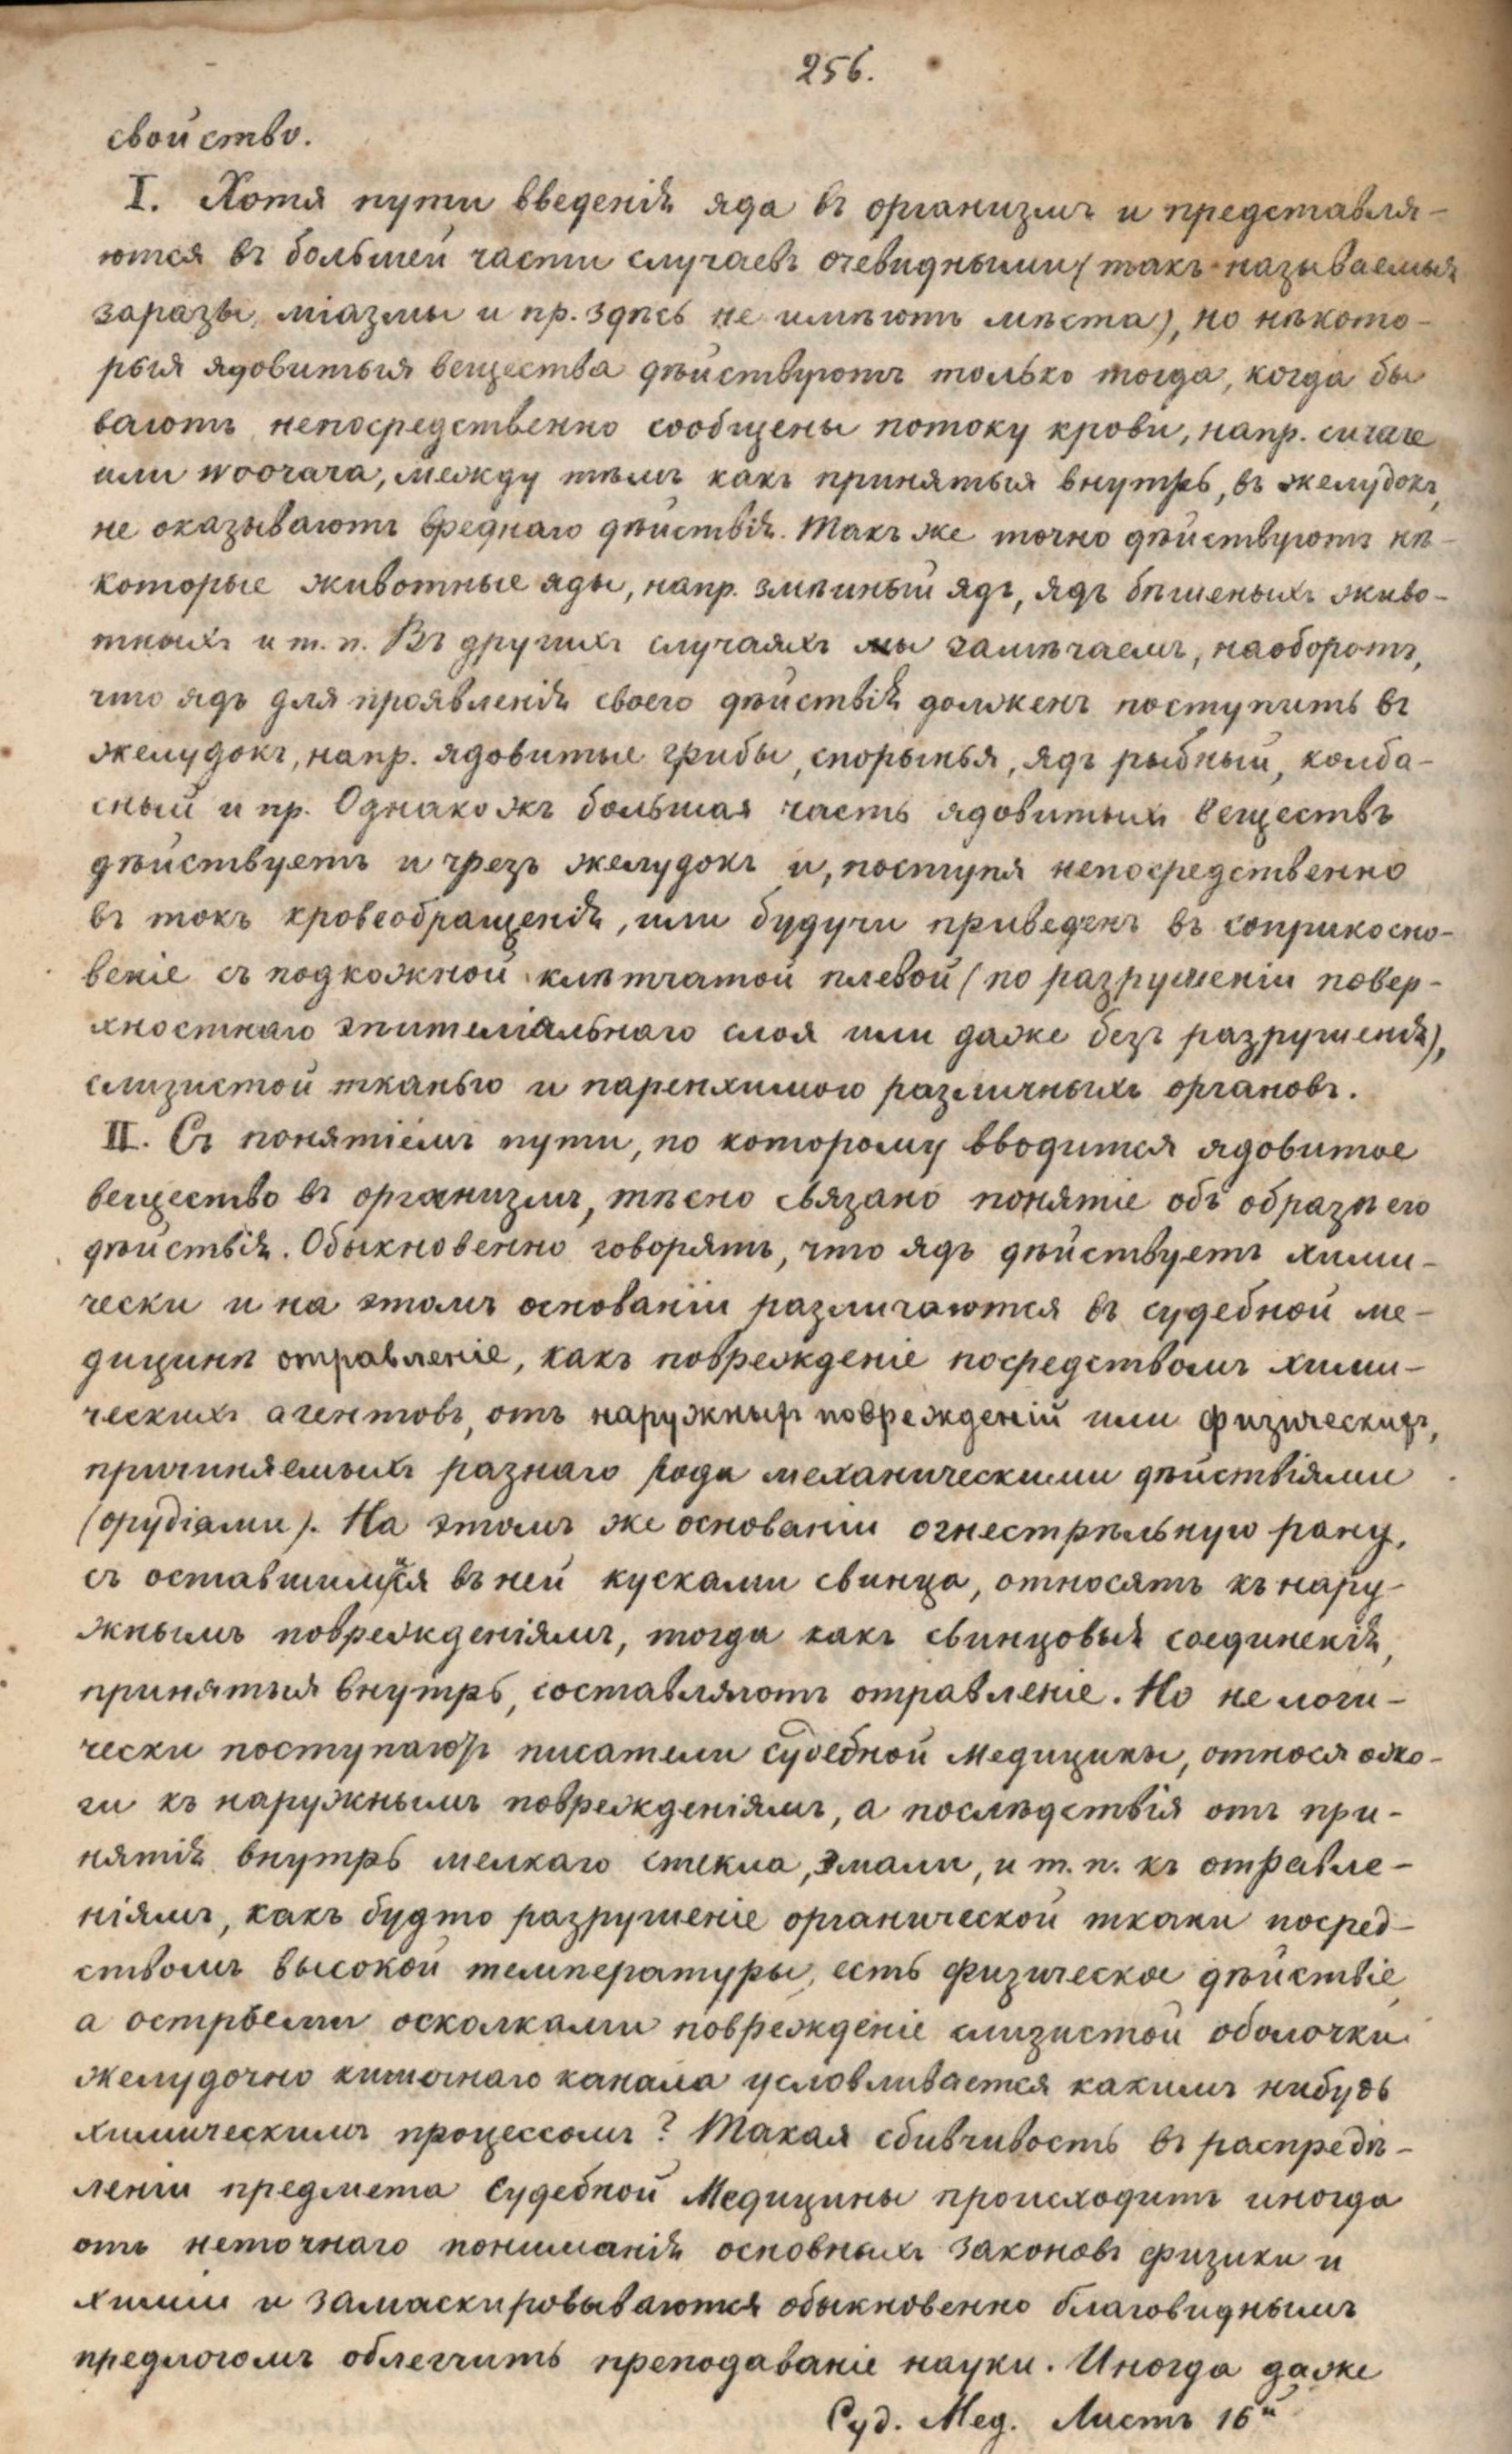 256.
свойство.
I. Хотя пути введенія яда въ организмъ и представля-
ются въ большей части случаевъ очевидными (такъ называемыя
заразы, міазмы и пр. здѣсь не имѣютъ мѣста), но нѣкото-
рыя ядовитыя вещества дѣйствуютъ только тогда, когда бы
ваютъ непосредственно сообщены потоку крови, напр. curare
или woorara, между тѣмъ какъ принятыя внутрь, въ желудокъ,
не оказываютъ вреднаго дѣйствія. Такъ же точно дѣйствуютъ нѣ-
которые животные яды, напр. змѣиный ядъ, ядъ бѣшеныхъ живо-
тныхъ и т. п. Въ другихъ случаяхъ мы замѣчаемъ, наоборотъ,
что ядъ для проявленія своего дѣйствія долженъ поступить въ
желудокъ, напр. ядовитые грибы, спорынья, ядъ рыбный, колба-
сный и пр. Однакожъ большая часть ядовитыхъ веществъ
дѣйствуетъ и чрезъ желудокъ и, поступя непосредственно
въ токъ кровеобращенія, или будучи приведенъ въ соприкосно-
веніе съ подкожной клѣтчатой плевой (по разрушеніи повер-
хностнаго эпителіальнаго слоя или даже безъ разрушенія),
слизистой тканью и паренхимою различныхъ органовъ.
II. Съ понятіемъ пути, по которому вводится ядовитое
вещество въ организмъ, тѣсно связано понятіе объ образѣ его
дѣйствія. Обыкновенно говорятъ, что ядъ дѣйствуетъ хими-
чески и на этомъ основаніи различаются въ судебной ме-
дицинѣ отравленіе, какъ поврежденіе посредствомъ хими-
ческихъ агентовъ, отъ наружныхъ поврежденій или физическихъ,
причиняемыхъ разнаго рода механическими дѣйствіями
(орудіами). На этомъ же основаніи огнестрѣльную рану,
съ оставшимися въ ней кусками свинца, относятъ къ нару-
жнымъ поврежденіямъ, тогда какъ свинцовыя соединенія,
принятыя внутрь, составляютъ отравленіе. Но не логи-
чески поступаютъ писатели судебной Медицины, относя ожо-
ги къ наружнымъ поврежденіямъ, а послѣдствія отъ при-
нятія внутрь мелкаго стекла, эмали, и т. п. къ отравле-
ніямъ, какъ будто разрушеніе органической ткани посред-
ствомъ высокой температуры, есть физическое дѣйствіе,
а острыми осколками поврежденіе слизистой оболочки
желудочно кишечнаго канала условливается какимъ нибудь
химическимъ процессомъ? Такая сбивчивость въ распредѣ-
леніи предмета Судебной Медицины происходитъ иногда
отъ неточнаго пониманія основныхъ законовъ физики и
химіи и замаскировываются обыкновенно благовиднымъ
предлогомъ облегчить преподаваніе науки. Иногда даже
Суд. Мед. Листъ 16й